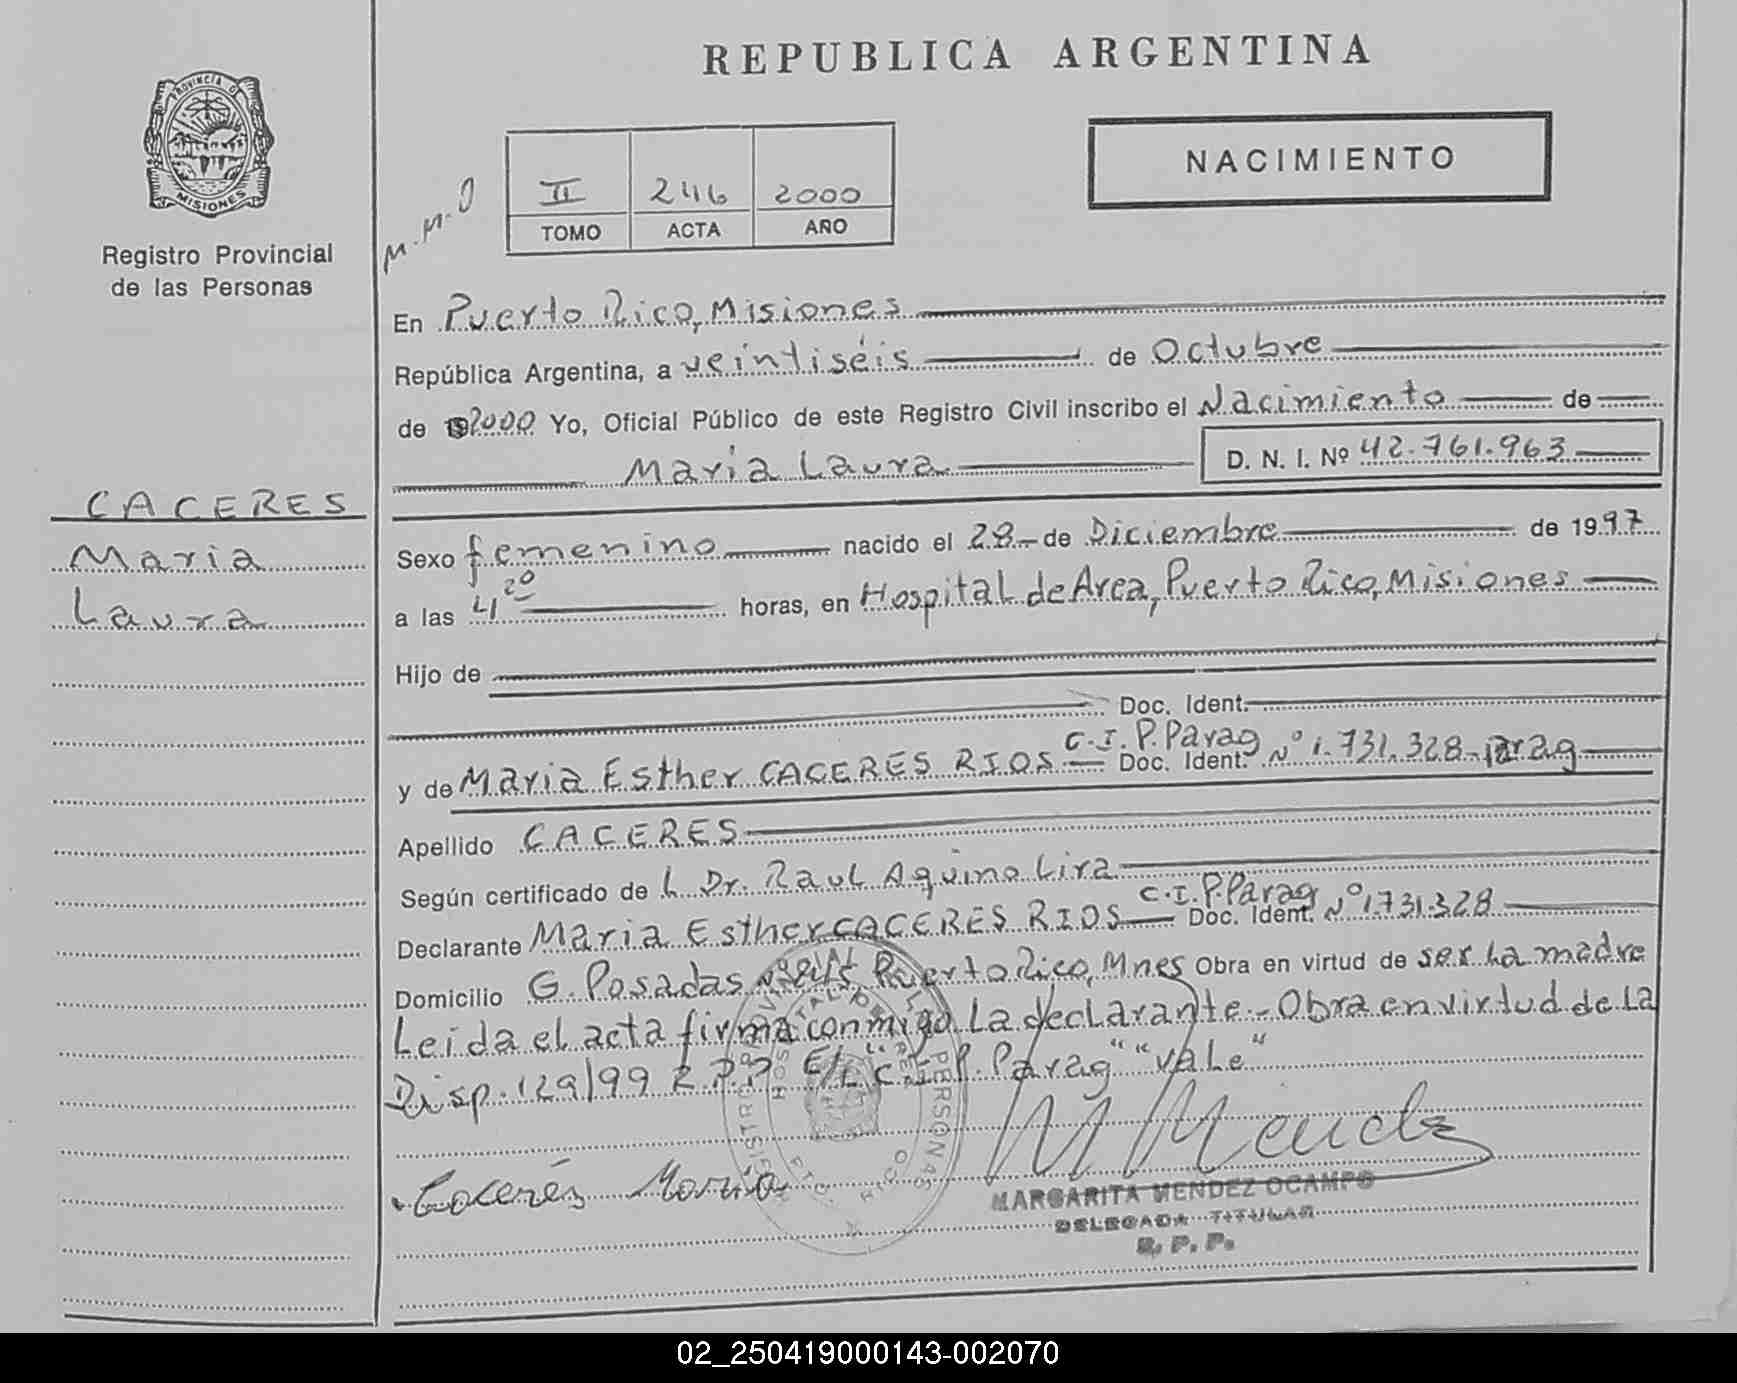 REPUBLICA ARGENTINA
PROVINCIA DE
MISIONES
Registro Provincial
de las Personas
NACIMIENTO
M.M.O
II 246 2000
TOMO ACTA AÑO
En Puerto Rico, Misiones
República Argentina, a veintiséis de Octubre
de 2000 Yo, Oficial Público de este Registro Civil inscribo el Nacimiento de
Maria Laura D. N. I. Nº 42.761.963
CACERES
Maria
Laura
Sexo femenino nacido el 28 de Diciembre de 1997
a las 4 20 horas, en Hospital de Area, Puerto Rico, Misiones
Hijo de
Doc. Ident.
y de Maria Esther CACERES RIOS C.I.P.Parag Doc. Ident. Nº 1.731.328 Parag
Apellido CACERES
Según certificado de L Dr. Raul Aquino Lira
Declarante Maria Esther CACERES RIOS C.I.P.Parag Doc. Ident. Nº 1.731.328
Domicilio G. Posadas Puerto Rico, Mnes Obra en virtud de ser La madre
Leida el acta firma conmigo La declarante.- Obra en virtud de La
Disp. 129/99 R.P.P. E/L "C.I.P. Parag" "Vale"
Cacerés Maria
M Mendez
MARGARITA MENDEZ OCAMPO
DELEGADA TITULAR
R. P. P.
02_250419000143-002070